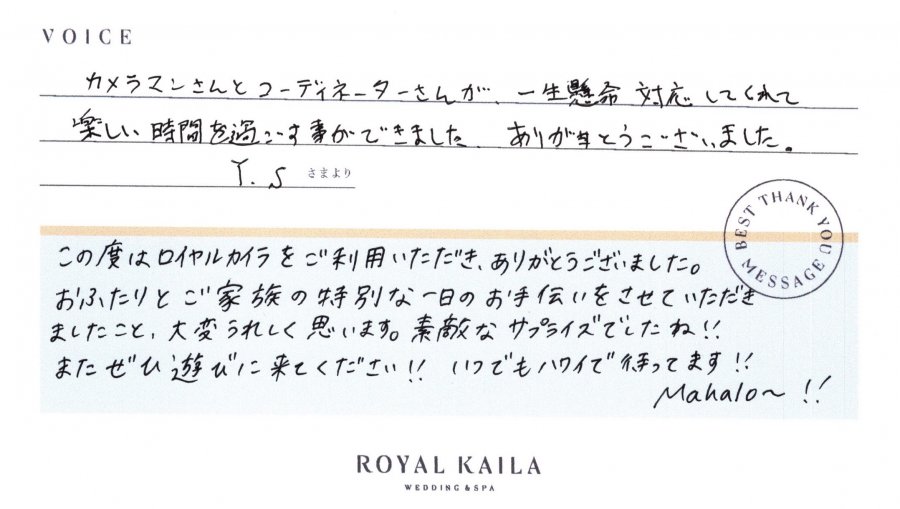 VOICE
カメラマンさんとコーディネーターさんが、一生懸命 対応してくれて
楽しい 時間を過ごす事ができました。ありがとうございました。
Y.S さまより
BEST THANK YOU MESSAGE
この度はロイヤルカイラをご利用いただき、ありがとうございました。
おふたりとご家族の特別な一日のお手伝いをさせていただき
ましたこと、大変うれしく思います。素敵なサプライズでしたね!!
またぜひ遊びに来てください!! いつでもハワイで待ってます!!
Mahalo~ !!
ROYAL KAILA
WEDDING & SPA